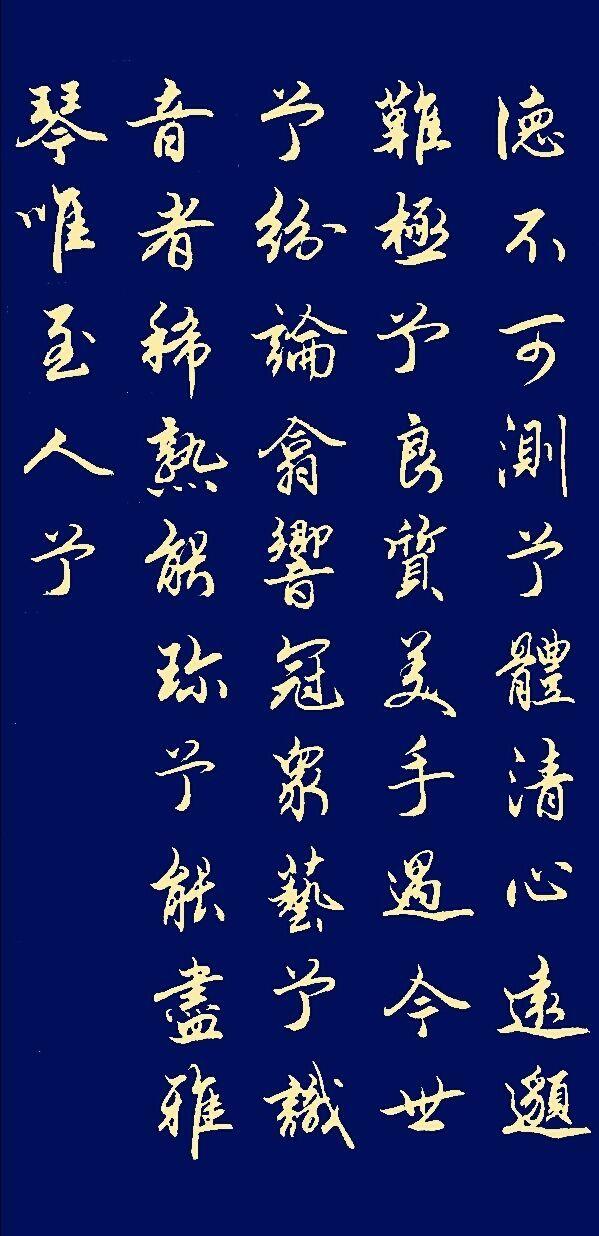 德不可測兮體清心遠邈
難極兮良質美手遇今世
兮紛論翕響冠眾藝兮識
音者稀熟能珍兮能盡雅
琴唯至人兮